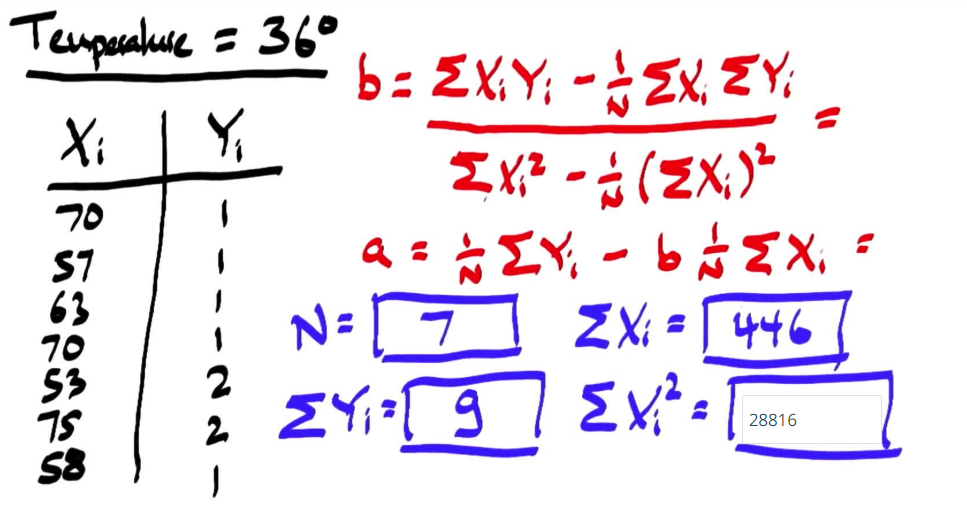 Temperature = 36°
Xi Yi
70 1
57 1
63 1
70 1
53 2
75 2
58 1
b = ΣXiYi - 1/N ΣXi ΣYi / ΣXi² - 1/N (ΣXi)² =
a = 1/N ΣYi - b 1/N ΣXi =
N = 7 ΣXi = 446
ΣYi = 9 ΣXi² = 28816